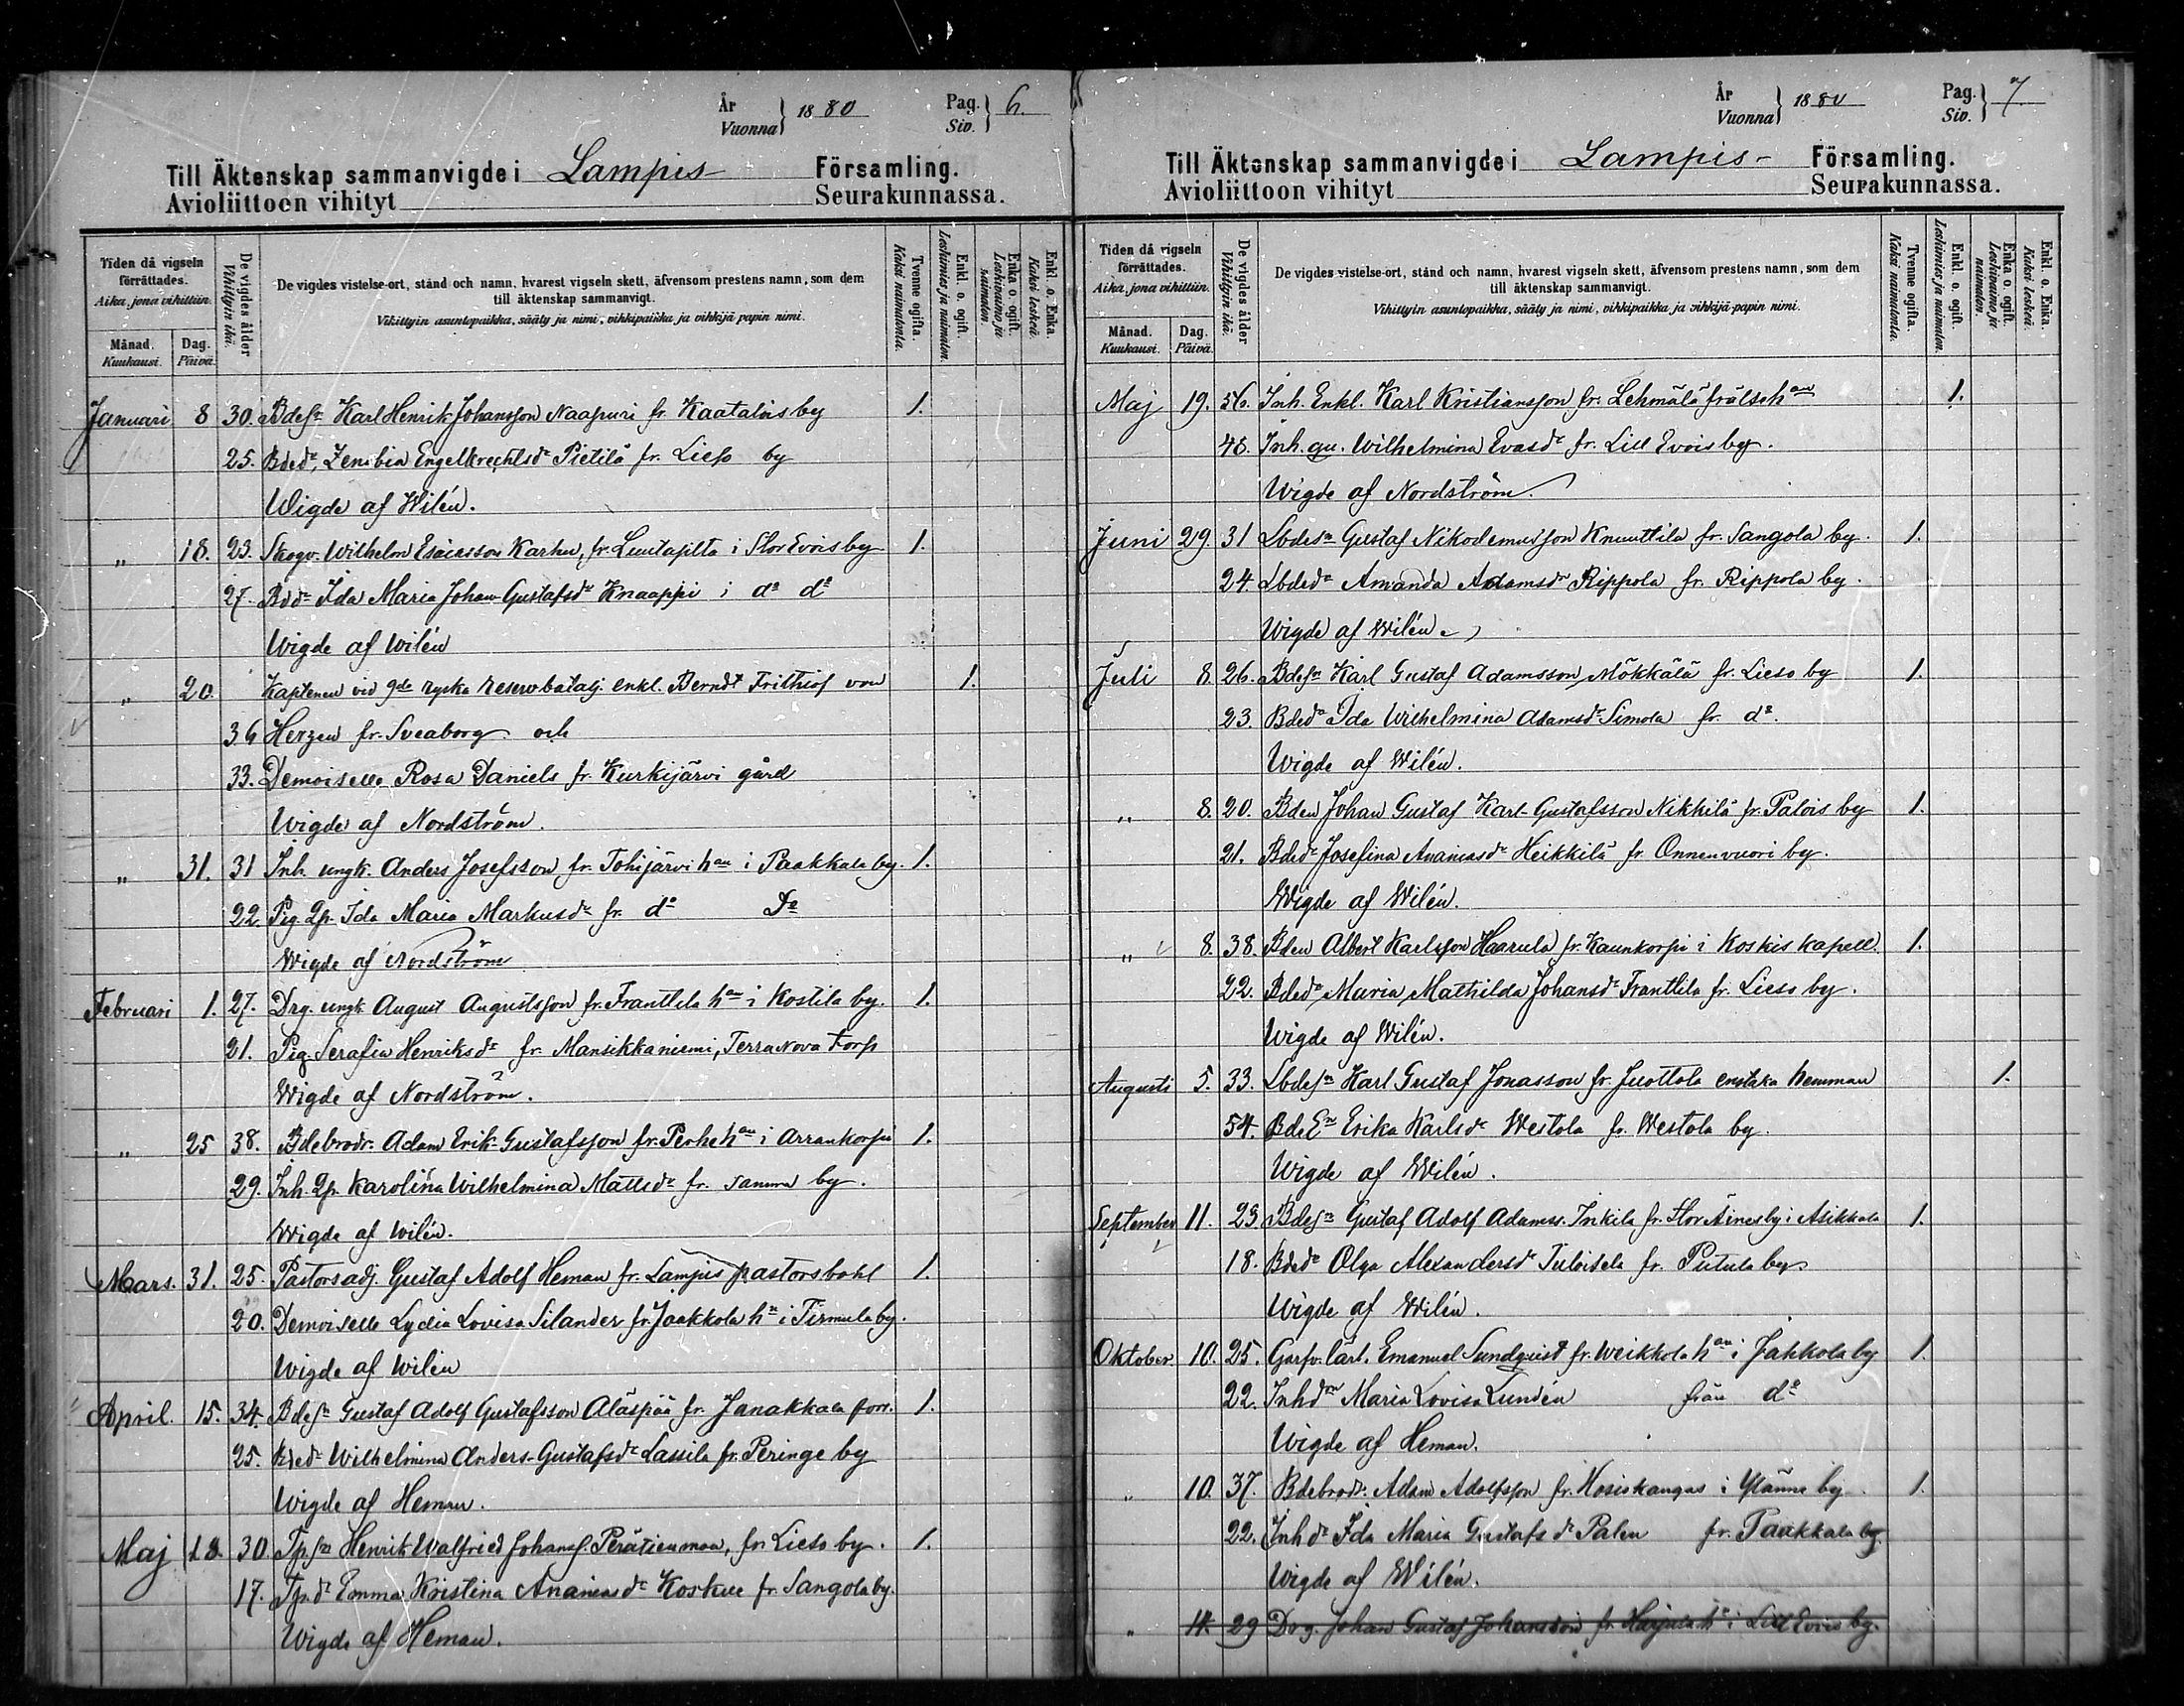 År
Vuonna } 1880 Pag. Siv. } 6.
Till Äktenskap sammanvigde i Lampis Församling.
Avioliittoen vihityt Seurakunnassa.
Tiden då vigseln förrättades.
Aika, jona vihittiin.
Månad. Kuukausi.
Dag. Päivä.
De vigdes ålder
Vihittyin ikä.
De vigdes vistelse-ort, stånd och namn, hvarest vigseln skett, äfvensom prestens namn, som dem
till äktenskap sammanvigt.
Vihittyin asuntopaikka, sääty ja nimi, vihkipaikka ja vihkijä-papin nimi.
Tvenne ogifta.
Kaksi naimatonta.
Enkl. o. ogift.
Leskimies ja naimaton.
Enka o. ogift.
Leskivaimo ja naimaton.
Enkl. o. Enka.
Kaksi leskeä.
Januari 8 30. Bdesn Karl Henrik Johansson Naapuri fr. Kaatalois by 1.
25. Bdedr Zenobia Engelbrechtsdr Pietilä fr. Lieso by
Wigde af Wilén.
„ 18. 23. Skogv. Wilhelm Esaiasson Karhu, fr. Luutasilta i Stor Evois by 1.
27. Bddr Ida Maria Johan-Gustafsdr Knaappi i do do
Wigde af Wilén
„ 20. Kaptenen vid 9de ryska reservbatalj. enkl. Berndt Frithiof von 1.
36 Herzen fr. Sveaborg och
33. Demoiselle Rosa Daniels fr. Kurkijärvi gård
Wigde af Nordström.
„ 31. 31 Inh. ungk. Anders Josefsson fr. Tohijärvi han i Paakkala by. 1.
22. Pig. Qp. Ida Maria Markusdr fr. do Do
Wigde af Nordström
Februari 1. 27. Drg. ungk August Augustsson fr. Franttila han i Kostila by. 1.
21. Pig. Serafia Henriksdr fr. Mansikkaniemi, Terranova torp
Wigde af Nordström.
„ 25 38. Bdebrodr. Adam Erik-Gustafsson fr. Perhe han i Arrankorpi 1.
29. Inh. Qp. Karolina Wilhelmina Mattsdr fr. samma by.
Wigde af Wilén.
Mars. 31. 25. Pastorsadj. Gustaf Adolf Heman fr. Lampis pastorsbohl 1.
20. Demoiselle Lydia Lovisa Silander fr. Jaakkola hn i Tirmula by.
Wigde af Wilén
April. 15. 34. Bdesn Gustaf Adolf Gustafsson Aläspää fr. Janakkala förs. 1.
25. Bdedr Wilhelmina Anders-Gustafsdr Lassila fr. Peringe by
Wigde af Heman.
Maj 18. 30. Tp.sn Henrik Walfried Johansf. Perätienmaa, fr. Lieso by. 1.
17. Tp.dr Emma Kristina Ananiasdr Koskue fr. Sangola by.
Wigde af Heman.
År
Vuonna } 1880 Pag. Siv. } 7
Till Äktenskap sammanvigde i Lampis- Församling.
Avioliittoon vihityt Seurakunnassa.
Tiden då vigseln förrättades.
Aika, jona vihittiin.
Månad. Kuukausi.
Dag. Päivä.
De vigdes ålder
Vihittyin ikä.
De vigdes vistelse-ort, stånd och namn, hvarest vigseln skett, äfvensom prestens namn, som dem
till äktenskap sammanvigt.
Vihittyin asuntopaikka, sääty ja nimi, vihkipaikka ja vihkijä-papin nimi.
Tvenne ogifta.
Kaksi naimatonta.
Enkl. o. ogift.
Leskimies ja naimaton.
Enka o. ogift.
Leskivaimo ja naimaton.
Enkl. o. Enka.
Kaksi leskeä.
Maj 19. 56. Inh. Enkl. Karl Kristiansson fr. Lehmälä frälseh an 1.
48. Inh. qu. Wilhelmina Evasdr fr. Lill Evois by.
Wigde af Nordström.
Juni 29. 31 Lbdesn Gustaf Nikodemusson Knuuttila fr. Sangola by. 1.
24. Lbdedr Amanda Adamsdr Rippola fr. Rippola by.
Wigde af Wilén.
Juli 8. 26. Bdesn Karl Gustaf Adamsson Mökkälä fr. Lieso by 1.
23. Bdedr Ida Wilhelmina Adamsdr Simola fr. do.
Wigde af Wilén.
„ 8. 20. Bden Johan Gustaf Karl-Gustafsson Nikkilä fr. Palois by 1.
21. Bdedr Josefina Ananiasdr Heikkilä fr. Onnenvuori by.
Wigde af Wilén.
„ 8. 38. Bden Albert Karlsson Haarula fr. Kaunkorpi i Koskis kapell. 1.
22. Bdedr Maria Mathilda Johansdr Franttila fr. Lieso by.
Wigde af Wilén.
Augusti 5. 33. Lbdesn Karl Gustaf Jonasson fr. Juottola enstaka hemman 1.
54. Bde En Erika Karlsdr Westola fr. Westola by.
Wigde af Wilén.
September 11. 23. Bdesn Gustaf Adolf Adamss. Inkila fr. Stor Äinesby i Asikkala 1.
18. Bdedr Olga Alexandersdr Tuloisela fr. Putula by
Wigde af Wilén.
Oktober 10. 25. Garfv. lärl. Emanuel Sundquist fr. Weikkola han i Jahkola by 1.
22. Inhdr Maria Lovisa Lundén från do
Wigde af Heman.
„ 10. 37. Bdebrodr. Adam Adolfsson fr. Hosiokangas i Ylänne by. 1.
22. Inh dr Ida Maria Gustafsdr Palen fr. Paakkala by.
Wigde af Wilén.
„ 14. 29 Drg. Johan Gustaf Johansson fr. Harjula hn i Lill Evois by.